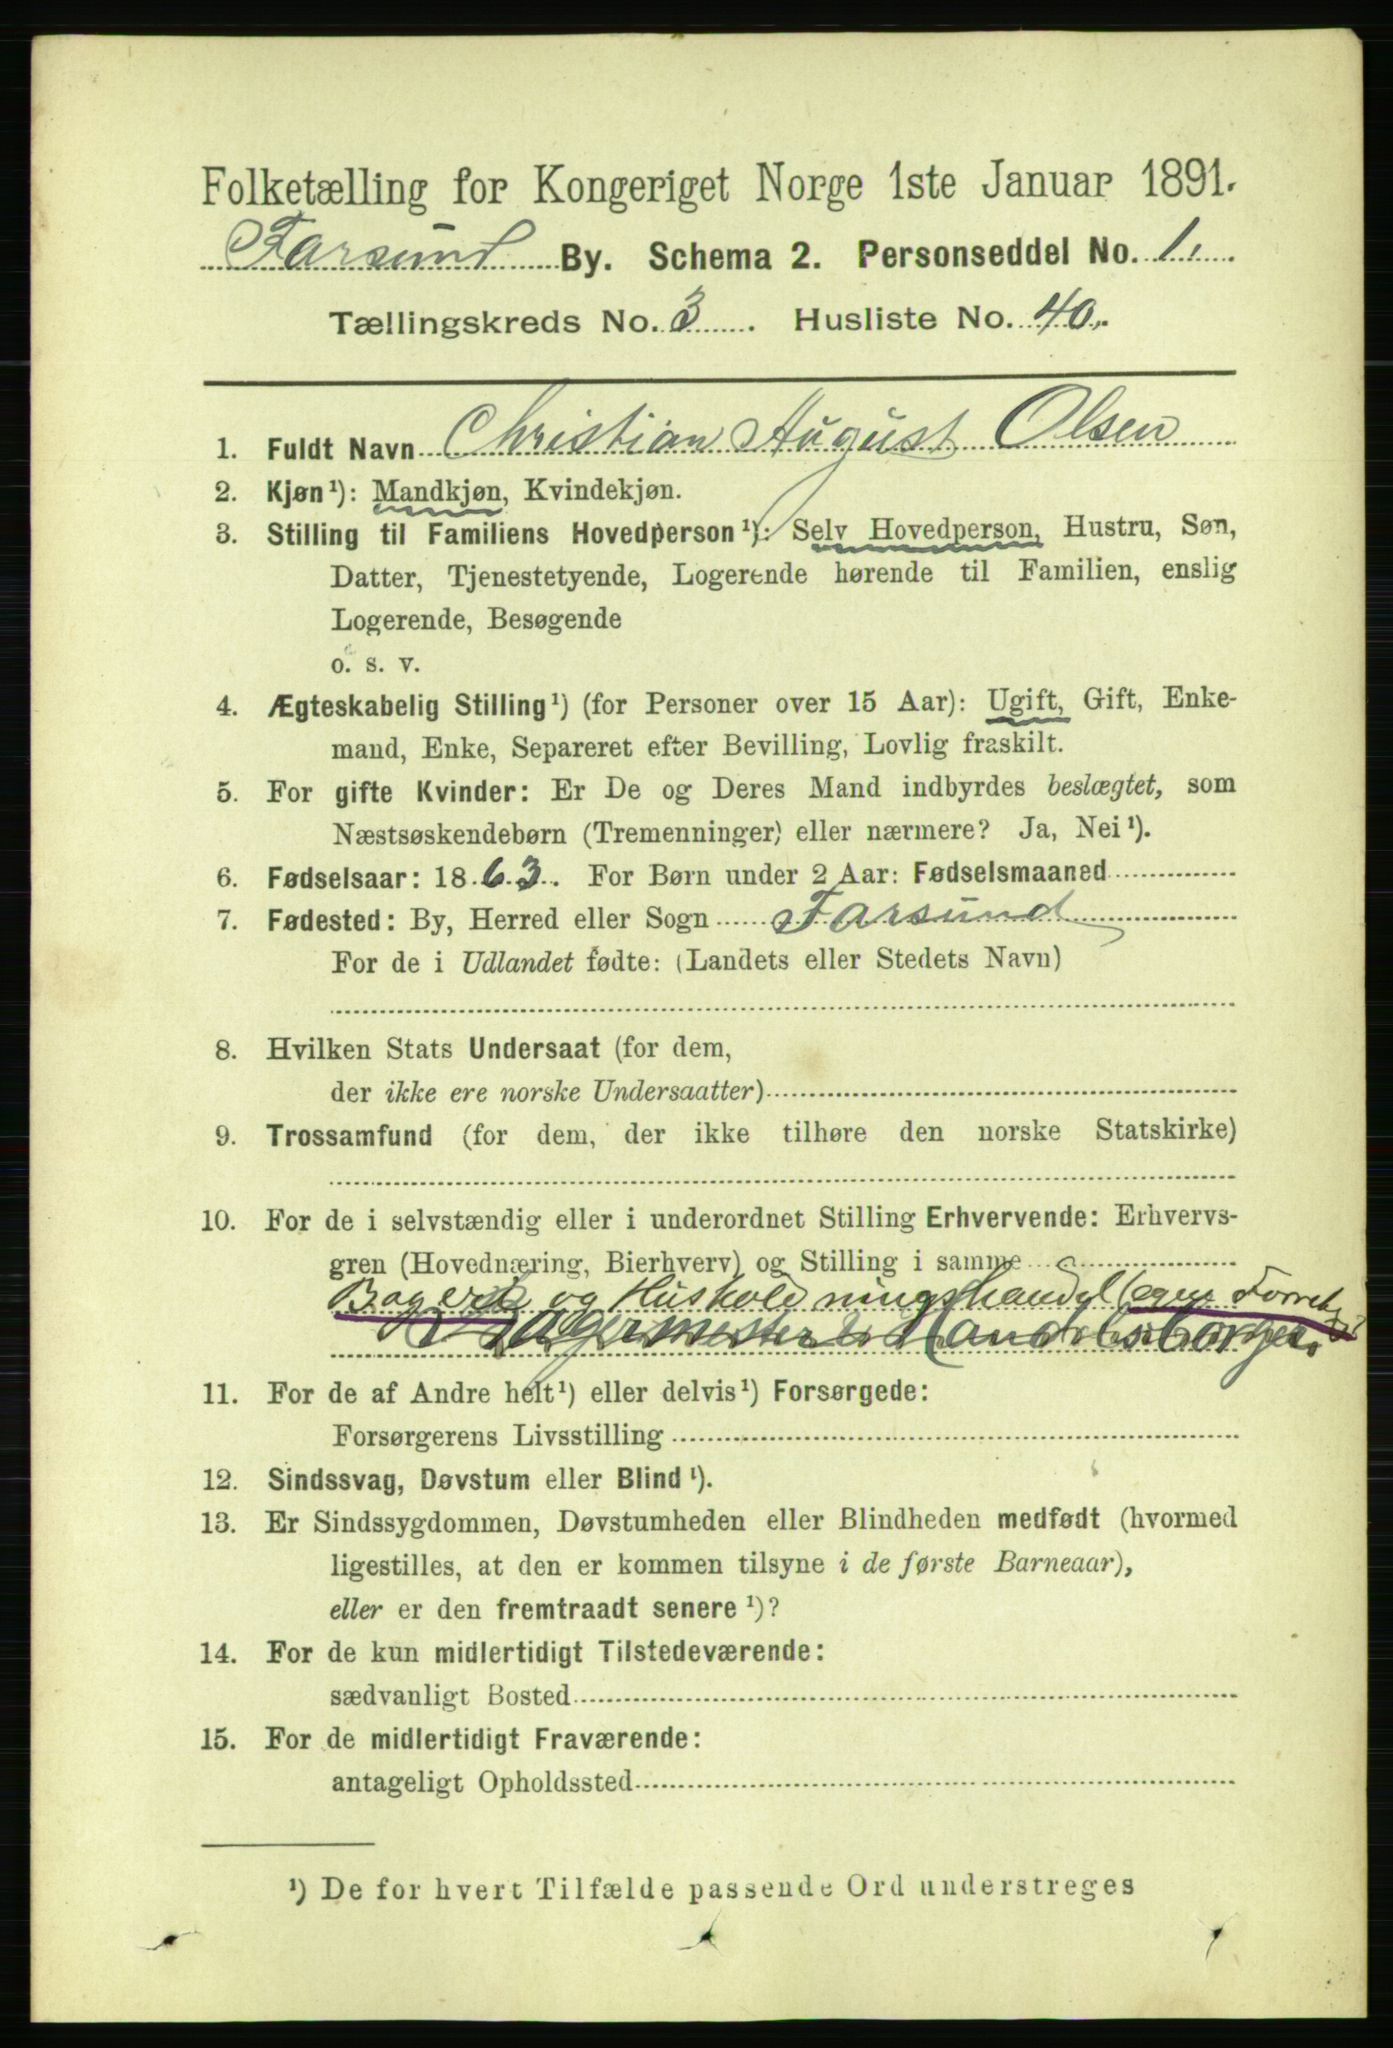 Folketælling for Kongeriget Norge 1ste Januar 1891.
Farsund By. Schema 2. Personseddel No. 1.
Tællingskreds No. 3. Husliste No. 40.
1. Fuldt Navn Christian August Olsen
2. Kjøn ¹): Mandkjøn, Kvindekjøn.
3. Stilling til Familiens Hovedperson ¹): Selv Hovedperson, Hustru, Søn,
Datter, Tjenestetyende, Logerende hørende til Familien, enslig
Logerende, Besøgende
o. s. v.
4. Ægteskabelig Stilling ¹) (for Personer over 15 Aar): Ugift, Gift, Enke-
mand, Enke, Separeret efter Bevilling, Lovlig fraskilt.
5. For gifte Kvinder: Er De og Deres Mand indbyrdes beslægtet, som
Næstsøskendebørn (Tremenninger) eller nærmere? Ja, Nei ¹).
6. Fødselsaar: 1863. For Børn under 2 Aar: Fødselsmaaned
7. Fødested: By, Herred eller Sogn Farsund
For de i Udlandet fødte: (Landets eller Stedets Navn)
8. Hvilken Stats Undersaat (for dem,
der ikke ere norske Undersaatter)
9. Trossamfund (for dem, der ikke tilhøre den norske Statskirke)
10. For de i selvstændig eller i underordnet Stilling Erhvervende: Erhvervs-
gren (Hovednæring, Bierhverv) og Stilling i samme
og Husholdningshandel (egen
Bagermester & Handelsborger.
11. For de af Andre helt ¹) eller delvis ¹) Forsørgede:
Forsørgerens Livsstilling
12. Sindssvag, Døvstum eller Blind ¹).
13. Er Sindssygdommen, Døvstumheden eller Blindheden medfødt (hvormed
ligestilles, at den er kommen tilsyne i de første Barneaar),
eller er den fremtraadt senere ¹)?
14. For de kun midlertidigt Tilstedeværende:
sædvanligt Bosted
15. For de midlertidigt Fraværende:
antageligt Opholdssted
¹) De for hvert Tilfælde passende Ord understreges